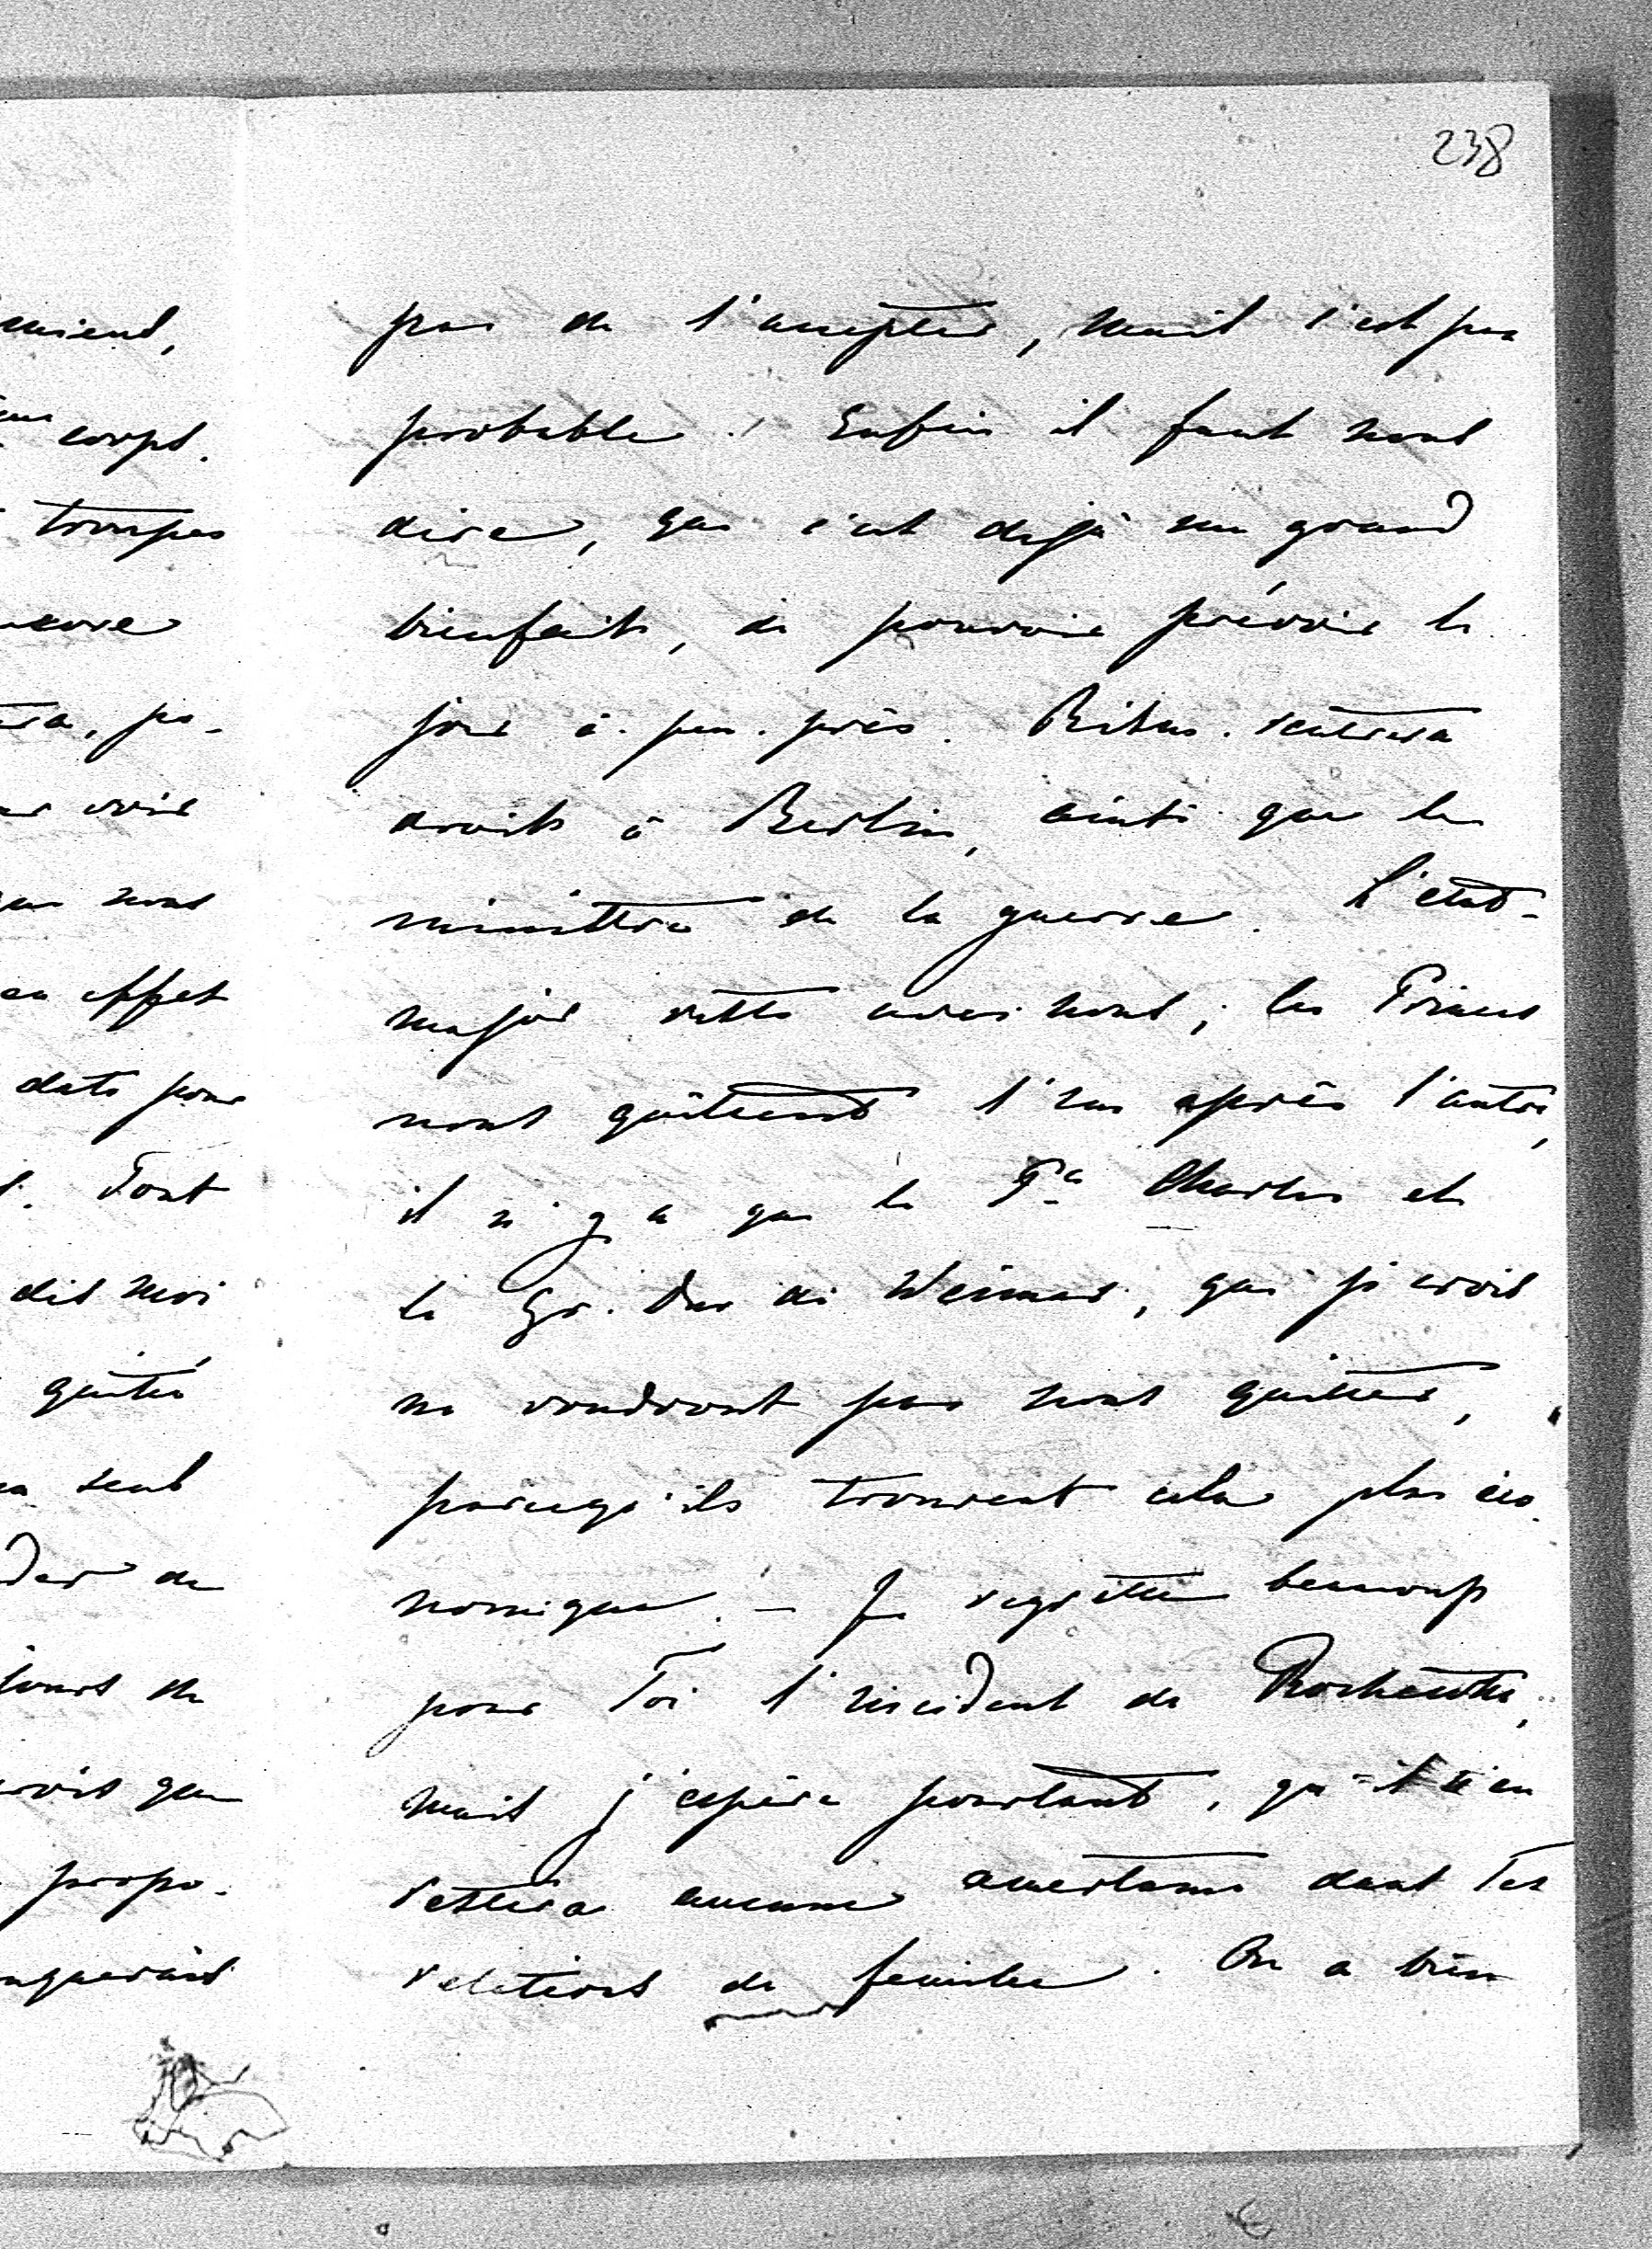 238
pas de l'accepter, mais c'est peu
probable. Enfin il faut nous
dire, que c'est dejà un grand
bienfait, de pouvoir prévoir le
jour à-peu-près. Bism. rentrera
droit à Berlin, ainsi que le
ministre de la guerre. L'etat-
major reste avec nous; les Princes
nous quittent l'un après l'autre,
il n'y a que le Pce Charles et
le Gr. Duc de Weimar, qui je crois
ne voudront pas nous quitter,
parcequ'ils trouvent cela plus éco-
nomique. - Je regrette beaucoup
pour Toi l'incident de
mais j'espère pourtant, qu'il n'en
restera aucune amertume dans Tes
relations de famille. On a bien
corps.
troupes
encore
voir
nous
en effet
date pour
Tout
dis moi
quitté
seul
de
jours de
que
propo-